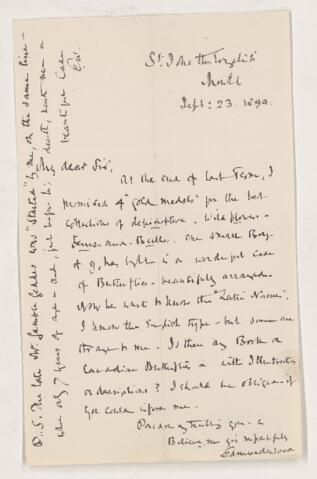 St. John the Evangelist
Montl
Sept: 23. 1899.
My dear Sir,
At the end of last Term, I
promised 4 "gold medals" for the best
collections of Lepidoptera - Wild flowers -
Ferns and Beetles. One small Boy
of 9, has bught in a wonderful Case
of Butterflies - beautifully arranged.
Now he wants to know the "Latin Names".
I know the English type - but some are
strange to me. Is there any Book on
Canadian Butterflies - with Illustrations
or descriptions? I should be obliged if
you could inform me.
Pardon my troubling you - &
Believe me yrs respectfully
Edmund Wood
P.S. The late Mr. was "started" by me, on the same line -
when only 7 years of age - and, just before his death, sent me a
beautiful Case
E.W.